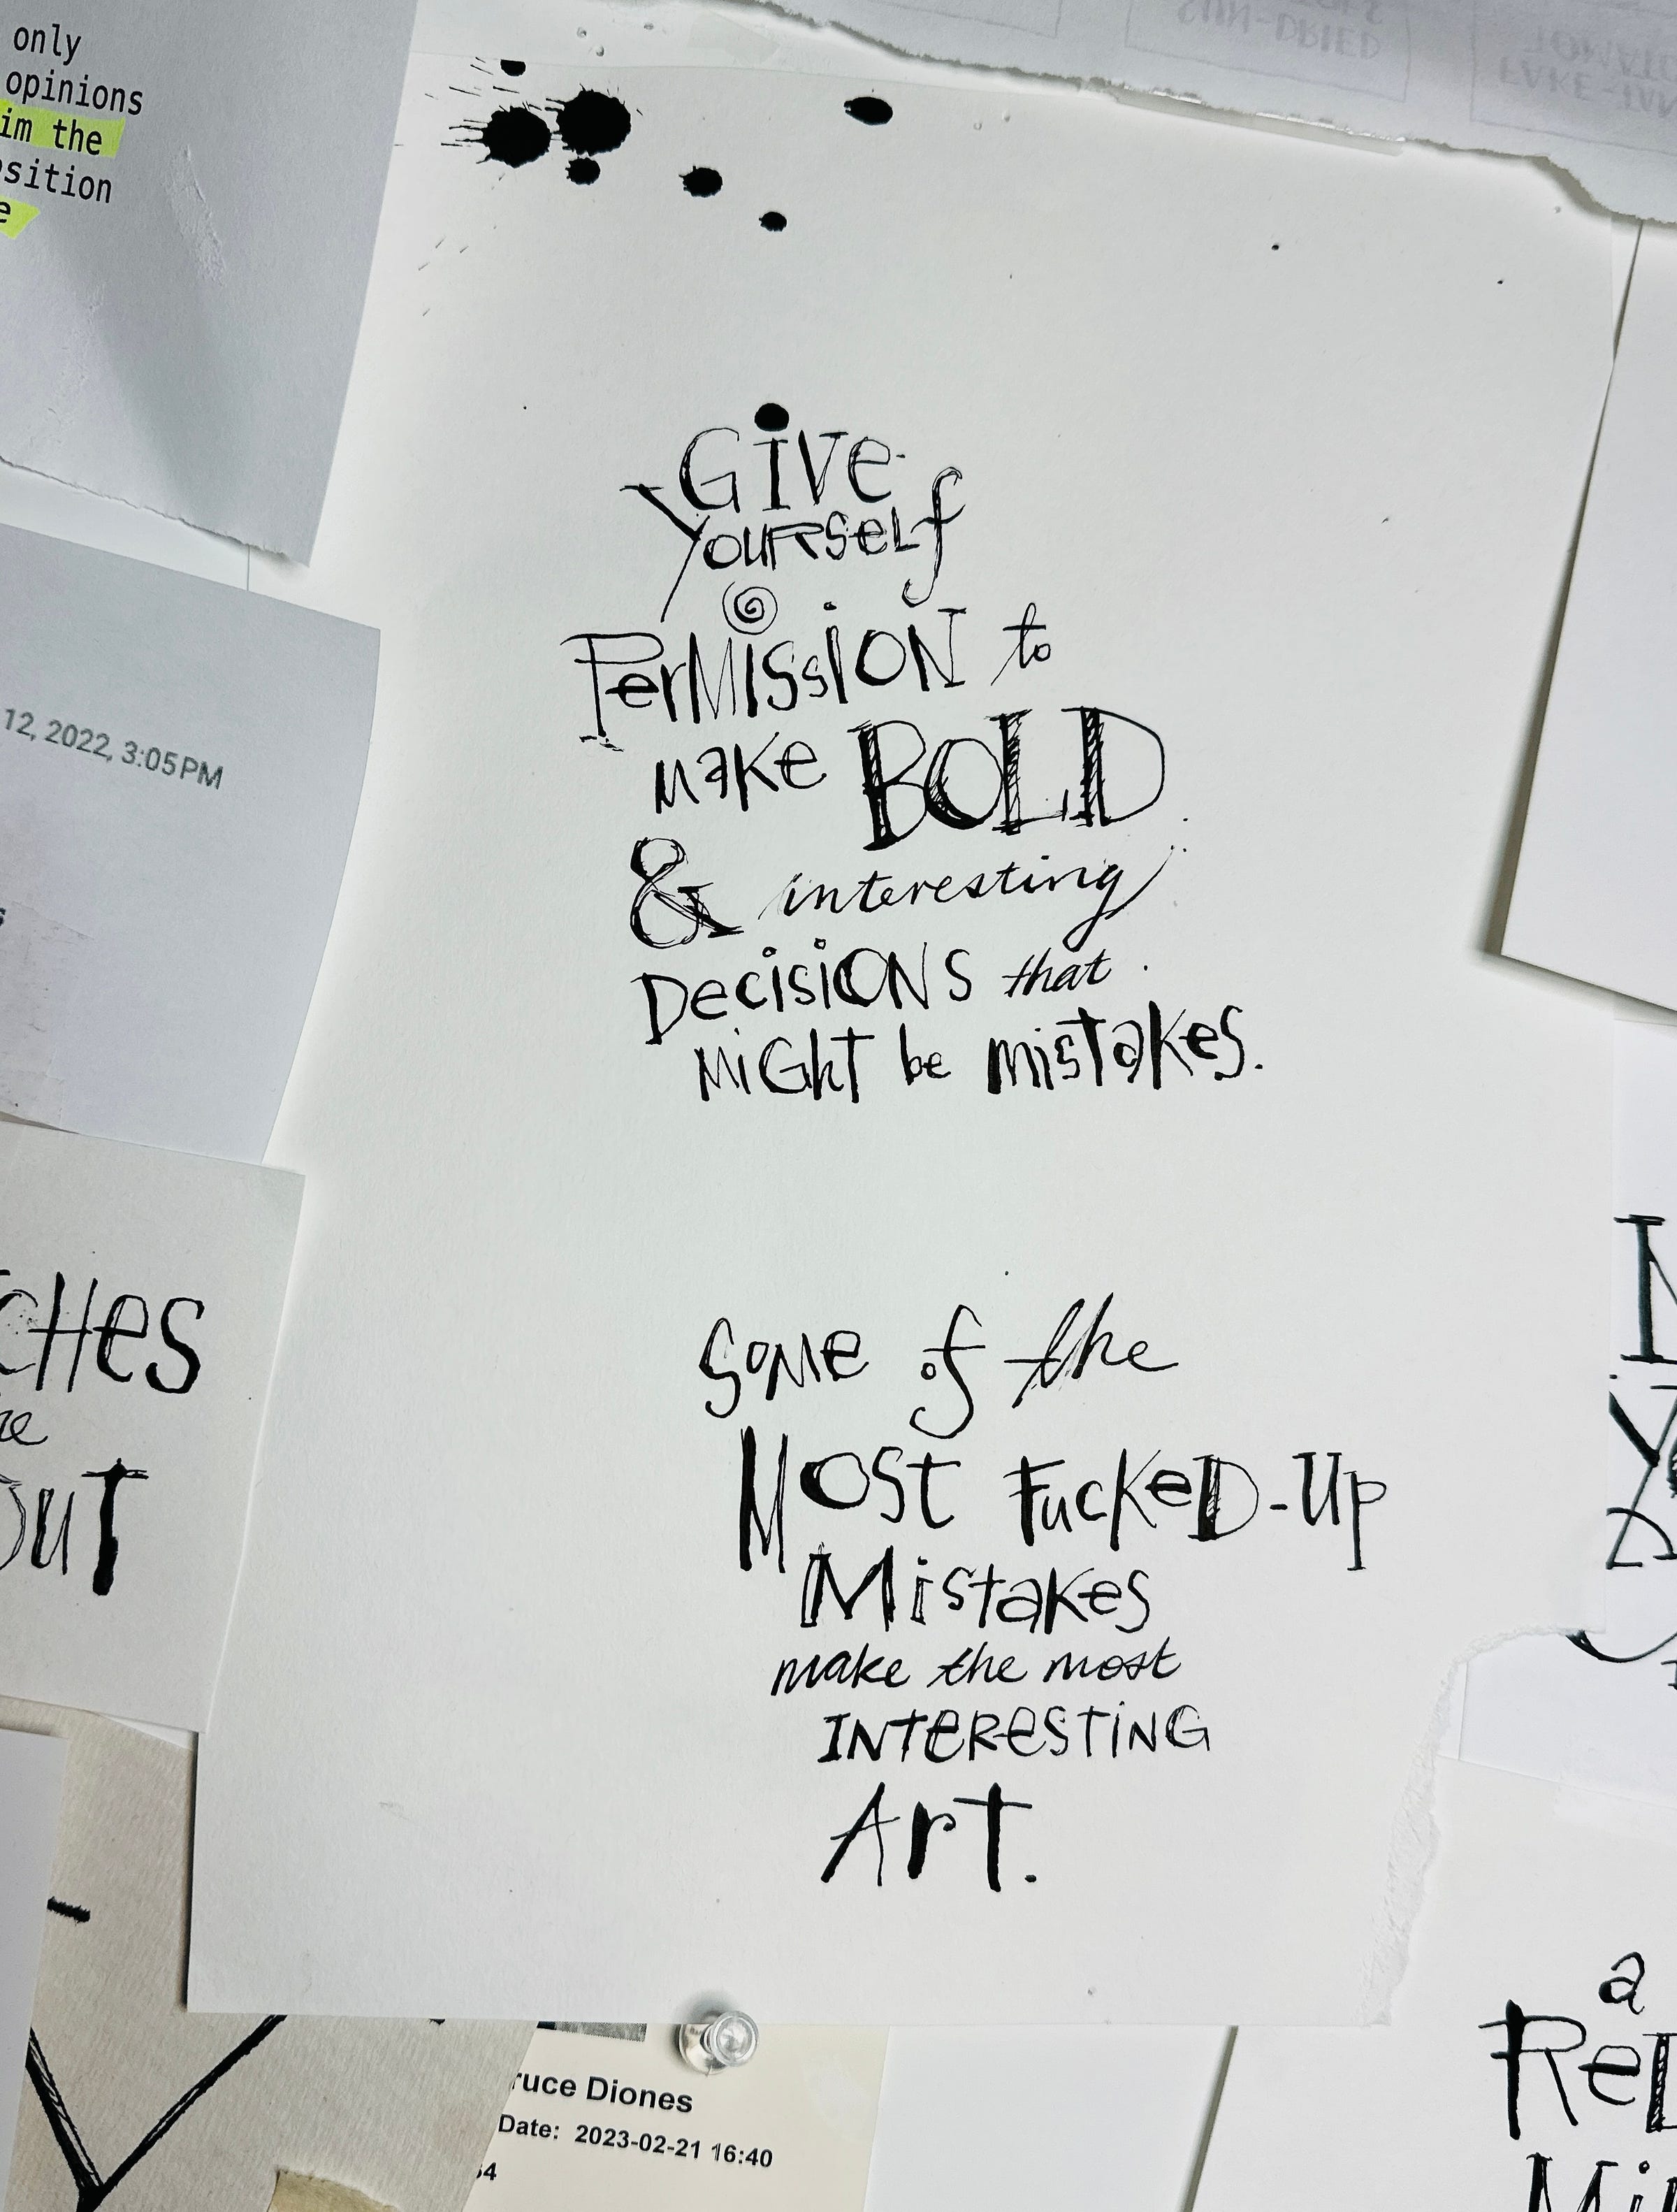 only
opinions
the
12, 2022, 3:05 PM
SUN-DRIED
GIVE
YOURSELF
PERMISSION to
make BOLD
& interesting
DECISIONS that
MIGHT be mistakes.
some of the
MOST FUCKED-UP
MISTAKES
make the most
INTERESTING
ART.
OUT
Diones
Date: 2023-02-21 16:40
a